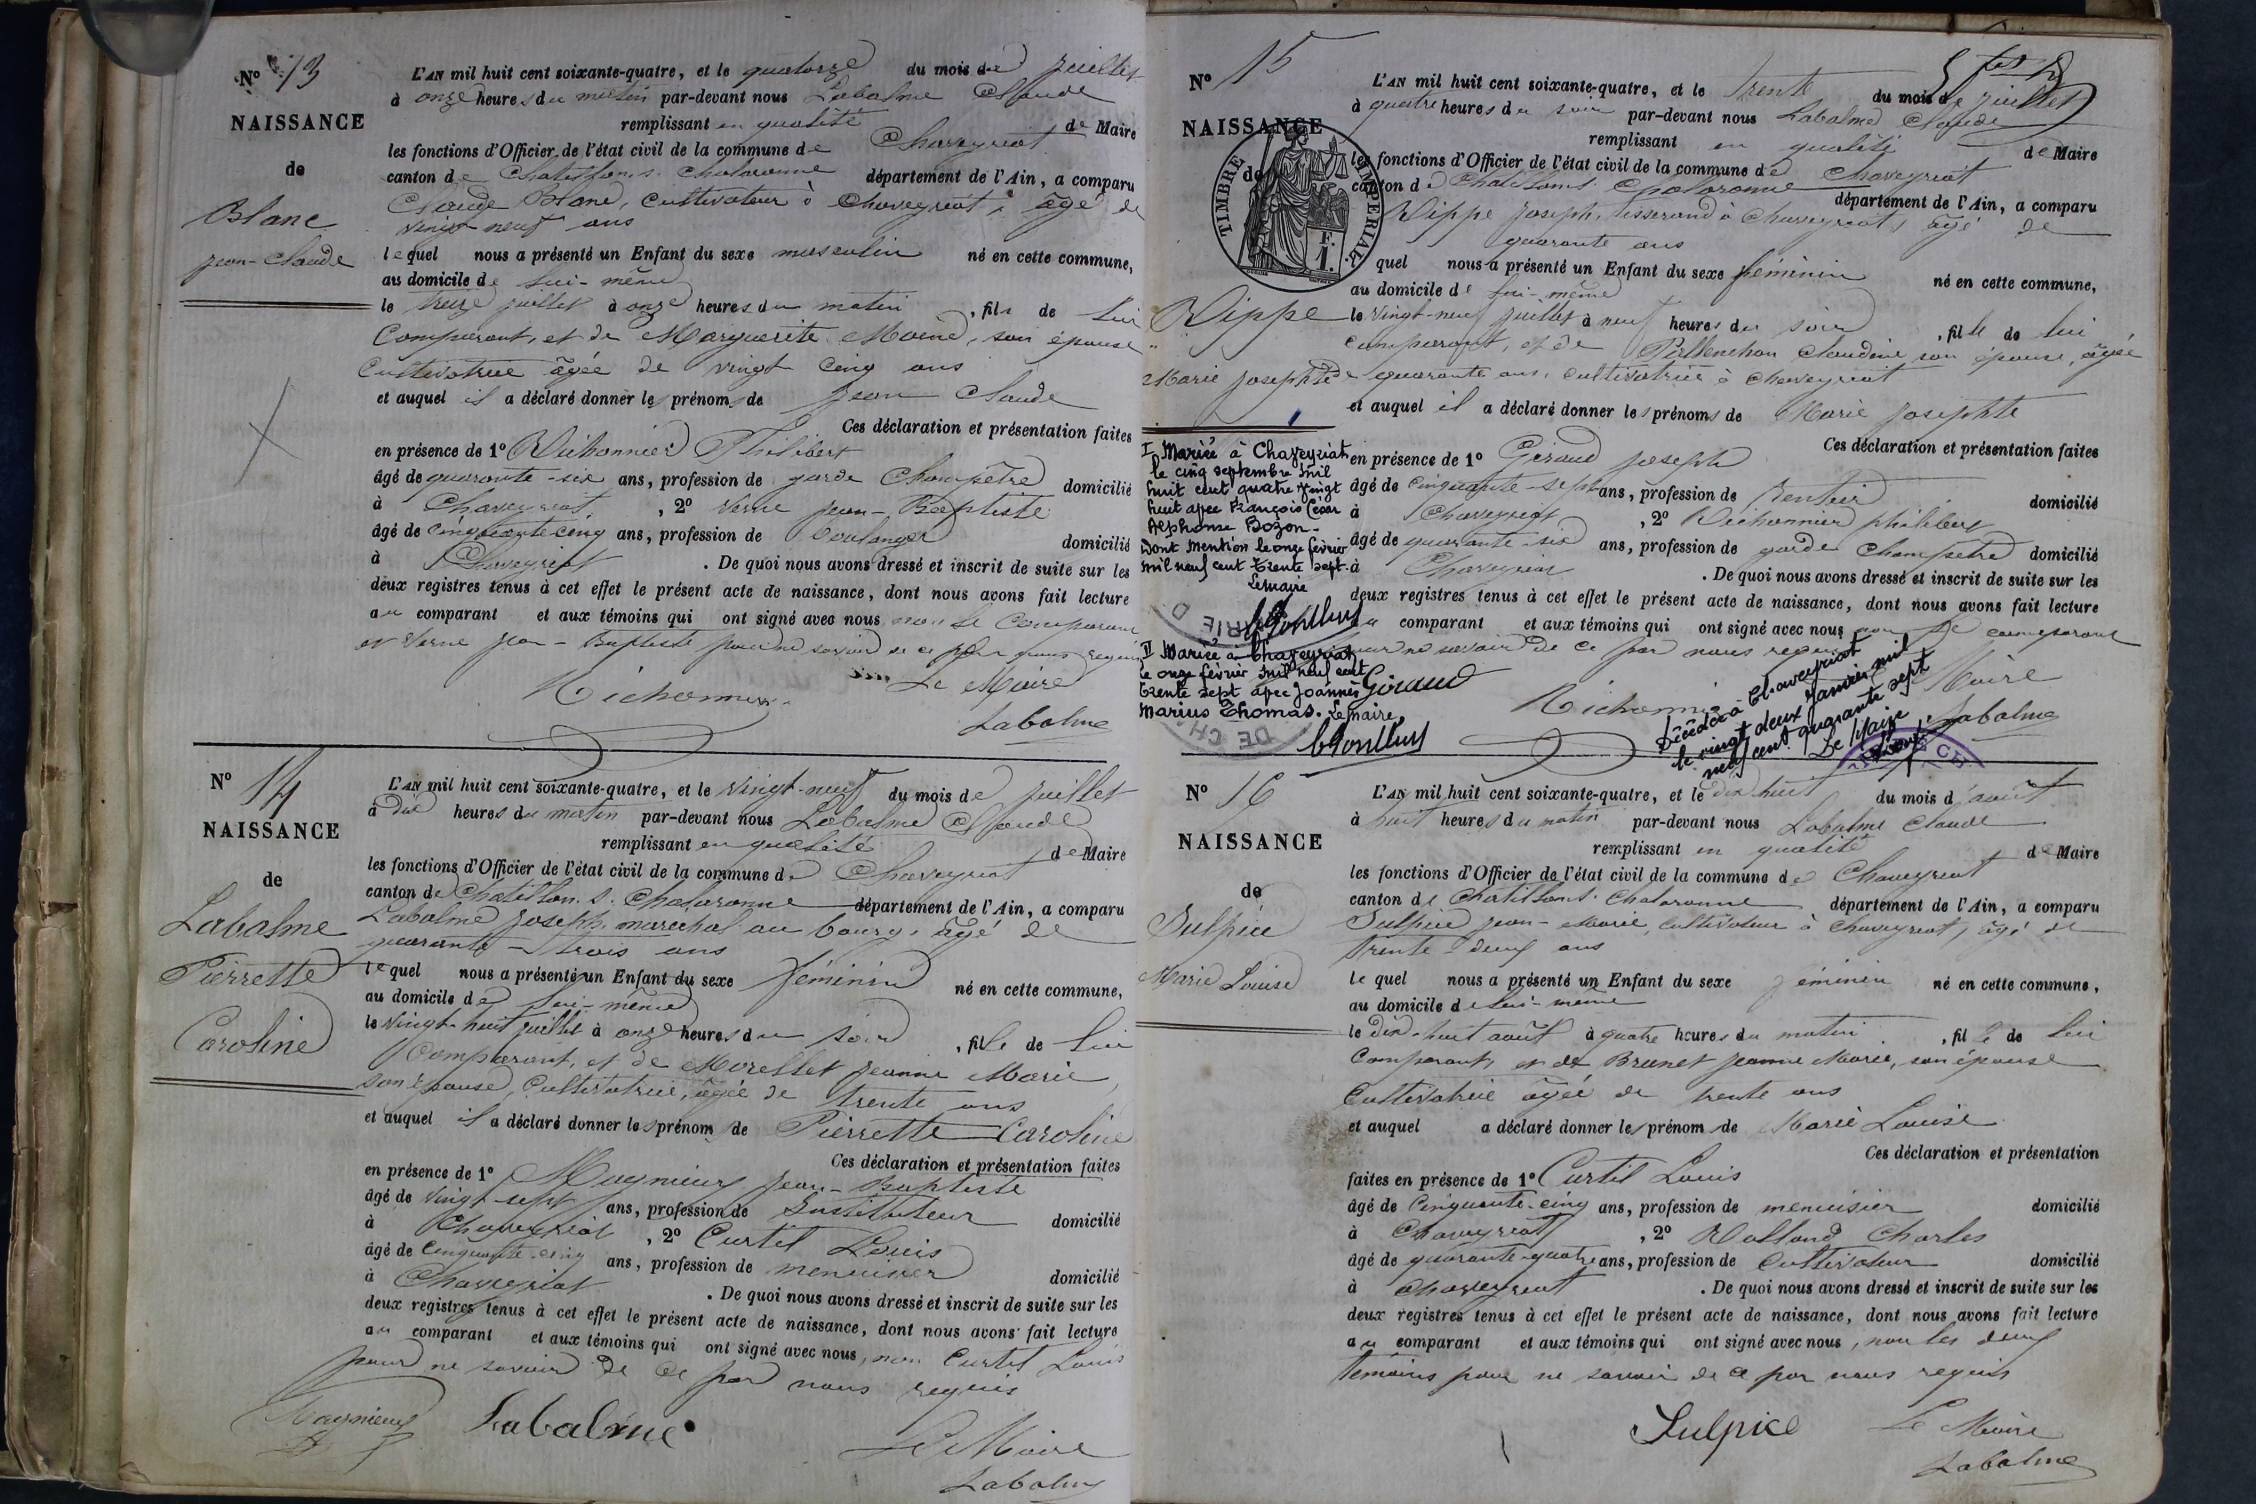 N° 13
NAISSANCE
de
Blanc
Jean-Claude
L'AN mil huit cent soixante-quatre, et le quatorze du mois de juillet
à onze heures du matin par-devant nous Labalme Claude
remplissant en qualité de Maire
les fonctions d'Officier de l'état civil de la commune de Chaveyriat
canton de Chatillon s. Chalaronne département de l'Ain, a comparu
Claude Blanc, cultivateur à Chaveyriat, âgé de
vingt-neuf ans
lequel nous a présenté un Enfant du sexe masculin né en cette commune,
au domicile de lui-même
le treize juillet à onze heures du matin, fils de lui
Comparant, et de Marguerite, son épouse
Cultivatrice âgée de vingt cinq ans
et auquel il a déclaré donner les prénoms de Jean Claude
Ces déclaration et présentation faites
en présence de 1° Richonnier Philibert
âgé de quarante-six ans, profession de garde Champêtre domicilié
à Chaveyriat, 2° Verne Jean-Baptiste
âgé de cinquante cinq ans, profession de boulanger domicilié
à Chaveyriat. De quoi nous avons dressé et inscrit de suite sur les
deux registres tenus à cet effet le présent acte de naissance, dont nous avons fait lecture
au comparant et aux témoins qui ont signé avec nous non le Comparant
et Verne Jean-Baptiste pour ne savoir de ce par nous requis
Richonnier
Le Maire
Labalme
N° 14
NAISSANCE
de
Labalme
Pierrette
Caroline
L'AN mil huit cent soixante-quatre, et le vingt-neuf du mois de juillet
à dix heures du matin par-devant nous Labalme Claude
remplissant en qualité de Maire
les fonctions d'Officier de l'état civil de la commune de Chaveyriat
canton de Chatillon s. Chalaronne département de l'Ain, a comparu
Labalme Joseph, marechal au bourg, âgé de
quarante-trois ans
lequel nous a présenté un Enfant du sexe féminin né en cette commune,
au domicile de lui-même
le vingt-huit juillet à onze heures du soir, fille de lui
Comparant, et de Morellet Jeanne Marie,
son épouse, Cultivatrice, âgée de trente ans
et auquel il a déclaré donner les prénoms de Pierrette Caroline
Ces déclaration et présentation faites
en présence de 1° Magnieux Jean-Baptiste
âgé de vingt-sept ans, profession de Instituteur domicilié
à Chaveyriat, 2° Curtil Louis
âgé de Cinquante-cinq ans, profession de menuisier domicilié
à Chaveyriat. De quoi nous avons dressé et inscrit de suite sur les
deux registres tenus à cet effet le présent acte de naissance, dont nous avons fait lecture
au comparant et aux témoins qui ont signé avec nous, non Curtil Louis
pour ne savoir de ce par nous requis
Magnieux
Labalme
Le Maire
Labalme
N° 15
NAISSANCE
de
TIMBRE IMPERIAL
Marie Josephte
I Mariée à Chaveyriat
le cinq septembre mil
huit cent quatre vingt
huit avec François César
Alphonse Bozon.
Dont mention le onze février
mil neuf cent trente sept.
Le maire
II Mariée à Chaveyriat
le onze février mil neuf cent
trente sept avec Joannes
Marius Thomas. Le maire
L'AN mil huit cent soixante-quatre, et le trente du mois de juillet
à quatre heures du soir par-devant nous Labalme Claude
remplissant en qualité de Maire
les fonctions d'Officier de l'état civil de la commune de Chaveyriat
canton de Chatillon s. Chalaronne département de l'Ain, a comparu
Joseph, tisserand à Chaveyriat, âgé de
quarante ans
quel nous a présenté un Enfant du sexe féminin né en cette commune,
au domicile de lui-même
le vingt-neuf juillet à neuf heures du soir, fille de lui
comparant, et de Claudine son épouse, âgée
de quarante ans, cultivatrice à Chaveyriat
et auquel il a déclaré donner les prénoms de Marie Josephte
Ces déclaration et présentation faites
en présence de 1° Giraud Joseph
âgé de cinquante-sept ans, profession de Rentier domicilié
à Chaveyriat, 2° Richonnier philibert
âgé de quarante-six ans, profession de garde Champetre domicilié
à Chaveyriat. De quoi nous avons dressé et inscrit de suite sur les
deux registres tenus à cet effet le présent acte de naissance, dont nous avons fait lecture
au comparant et aux témoins qui ont signé avec nous non le comparant
pour ne savoir de ce par nous requis
Giraud
Richonnier
Maire
Labalme
Décédée à Chaveyriat
le vingt deux janvier mil
neuf cent quarante sept
Le Maire
N° 16
NAISSANCE
de
Sulpice
Marie Louise
L'AN mil huit cent soixante-quatre, et le dix huit du mois d'août
à huit heures du matin par-devant nous Labalme Claude
remplissant en qualité de Maire
les fonctions d'Officier de l'état civil de la commune de Chaveyriat
canton de Chatillon s. Chalaronne département de l'Ain, a comparu
Sulpice Jean-Marie, cultivateur à Chaveyriat, âgé de
trente-deux ans
le quel nous a présenté un Enfant du sexe féminin né en cette commune,
au domicile de lui-même
le dix-huit août à quatre heures du matin, fille de lui
Comparant, et de Brunet Jeanne Marie, son épouse
Cultivatrice âgée de trente ans
et auquel a déclaré donner les prénoms de Marie Louise
Ces déclaration et présentation
faites en présence de 1° Curtil Louis
âgé de Cinquante-cinq ans, profession de menuisier domicilié
à Chaveyriat, 2° Rolland Charles
âgé de quarante-quatre ans, profession de Cultivateur domicilié
à Chaveyriat. De quoi nous avons dressé et inscrit de suite sur les
deux registres tenus à cet effet le présent acte de naissance, dont nous avons fait lecture
au comparant et aux témoins qui ont signé avec nous, non les deux
témoins pour ne savoir de ce par nous requis
Sulpice
Le Maire
Labalme